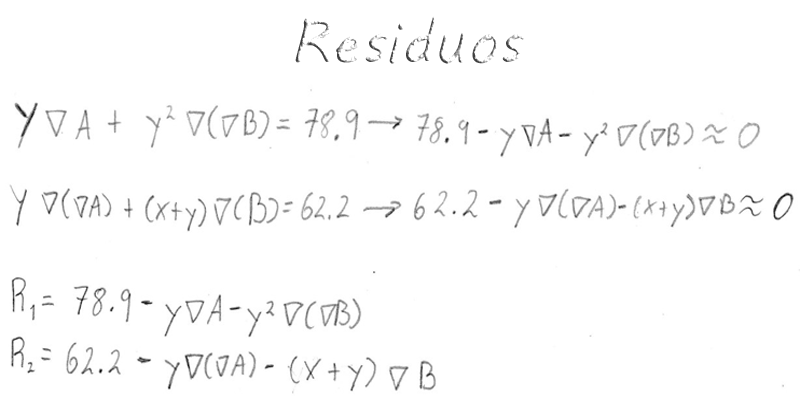 Residuos
y∇A + y² ∇(∇B) = 78.9 → 78.9 - y∇A - y² ∇(∇B) ≈ 0
y ∇(∇A) + (x+y)∇(B) = 62.2 → 62.2 - y∇(∇A) - (x+y)∇B ≈ 0
R₁ = 78.9 - y∇A - y² ∇(∇B)
R₂ = 62.2 - y∇(∇A) - (x+y) ∇B